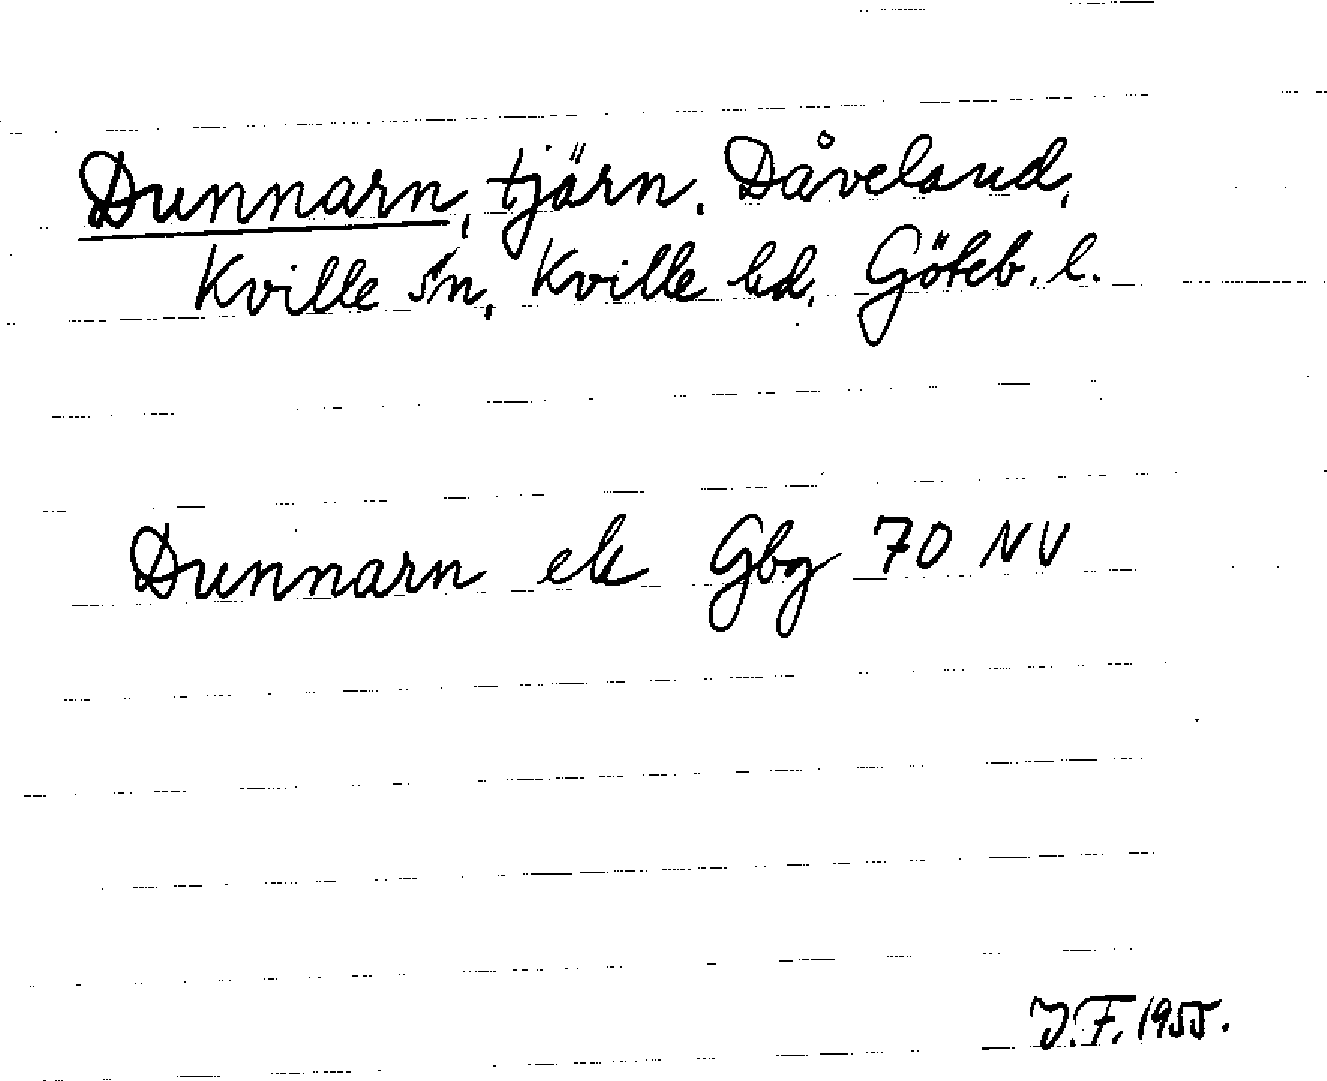 Dunnarn, tjärn. Dåveland,
Kville sn, Kville hd, Göteb. l.
Dunnarn ek Gbg 70 NV
J.F. 1955.